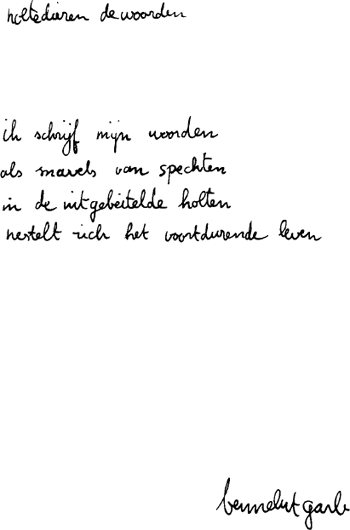 holtedieren de woorden
ik schrijf mijn woorden
als snavels van spechten
in de uitgebeitelde holten
nestelt zich het voortdurende leven